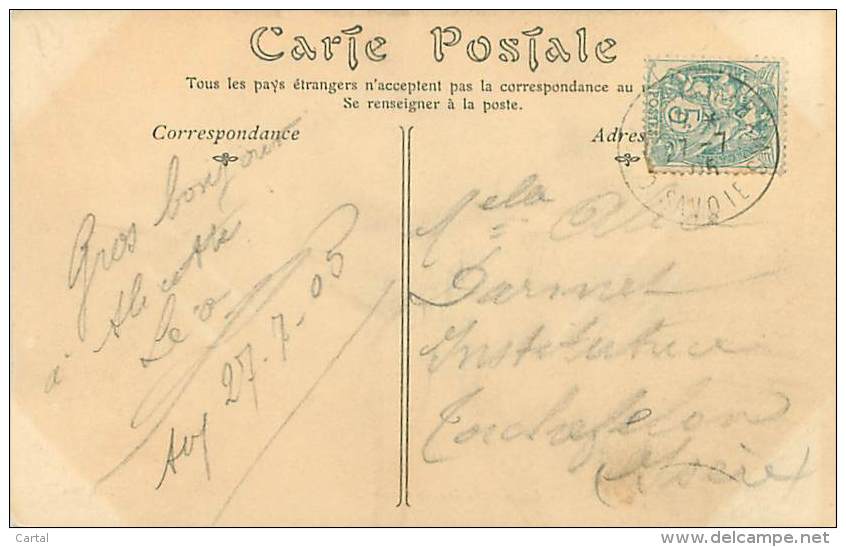 Carte Postale
Tous les pays étrangers n'acceptent pas la correspondance au
Se renseigner à la poste.
Correspondance
Adres
Gros bonjour
à
Léo
27-7-05
27 -7
05
SAVOIE
Darmet
Institutrice
(Isère)
Cartal
www.delcampe.net